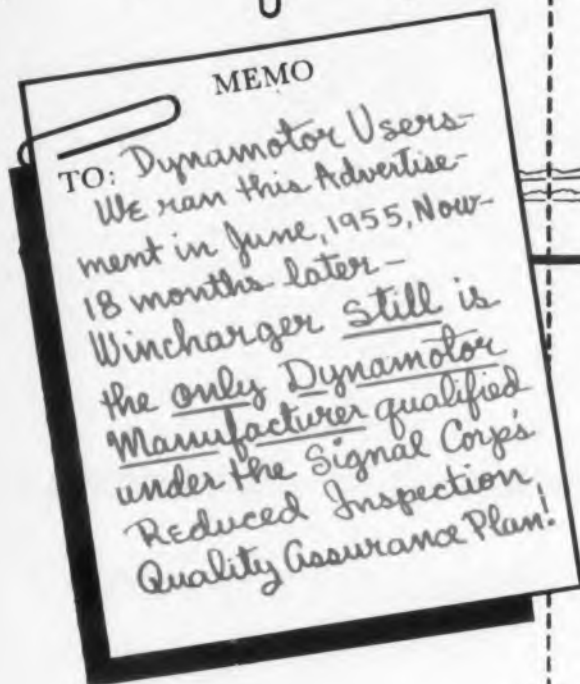 MEMO
TO: Dynamotor Users-
We ran this Advertise-
ment in June, 1955, Now-
18 months later-
Wincharger Still is
the only Dynamotor
Manufacturer qualified
under the Signal Corp's
Reduced Inspection
Quality Assurance Plan!